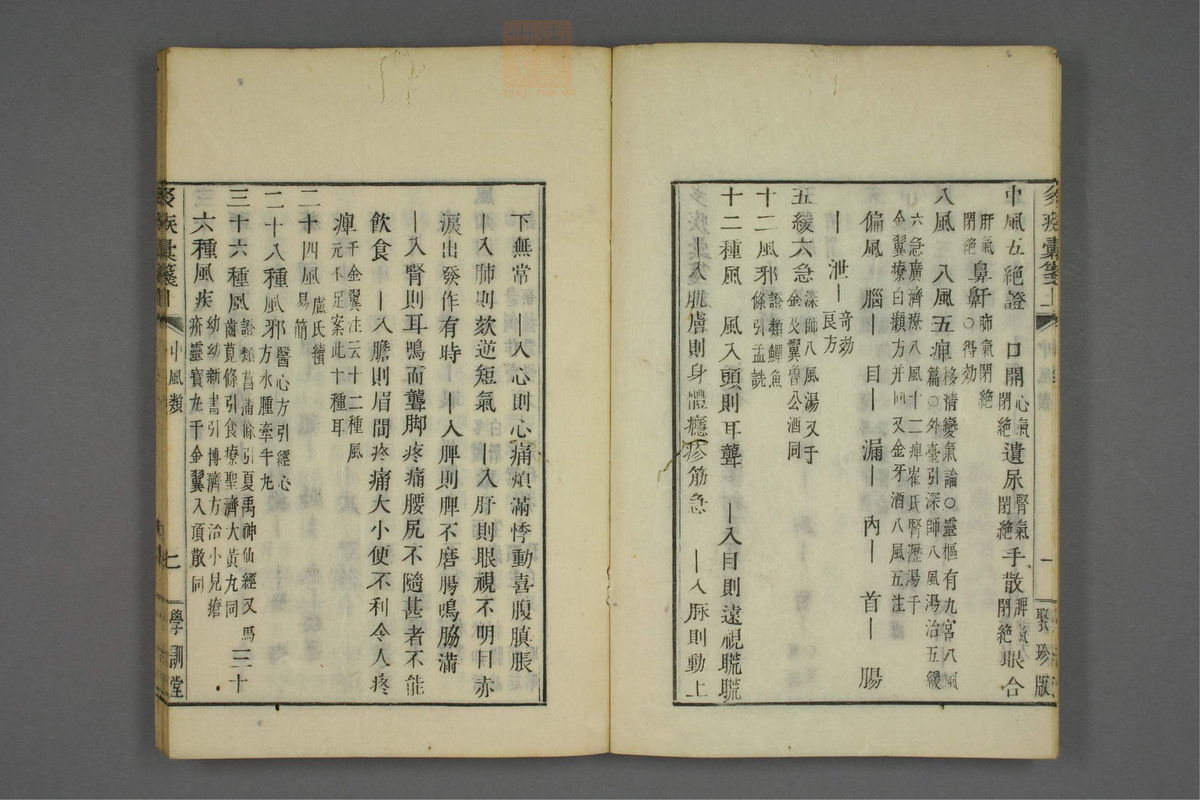 多疾彙箋上
一
聚珍版
中風五絕證 口開心氣閉絕遺尿腎氣閉絕手散脾氣閉絕眼合
肝氣閉絕鼻鼾肺氣閉絕○得効
八風 八風五痺移情變氣論○靈樞有九宮八風篇○外臺引深師八風湯治五緩
六急廣濟療八風十二痺崔氏腎瀝湯千金翼療白癩方并同又金牙酒八風五注
偏風 腦｜ 目｜ 漏｜ 內｜ 首｜ 腸
｜ 泄｜奇効良方
五緩六急深師八風湯又千金及翼雷公酒同
十二風邪證類鱓魚條引孟詵
十二種風 風入頭則耳聾 ｜入目則遠視䀮䀮
｜入肌膚則身體癮疹筋急 ｜入脉則動上
下無常｜入心則心痛煩滿悸動喜腹䐜脹
｜入肺則欬逆短氣 ｜入肝則眼視不明目赤
淚出發作有時｜入脾則脾不磨腸鳴脇滿
｜入腎則耳鳴而聾脚疼痛腰尻不隨甚者不能
飲食 ｜入膽則眉間疼痛大小便不利令人疼
痺千金翼注云十二種風元不足案此十種耳
二十四風盧氏續易簡
二十八種風邪醫心方引經心方水腫牽牛丸
三十六種風證類菖蒲條引夏禹神仙經又馬齒莧條引食療聖濟大黃丸同三十
六種風疾幼幼新書引博濟方治小兒瘡疥靈寶丸千金翼入頂散同
多疾彙箋
中風類
七
學訓堂